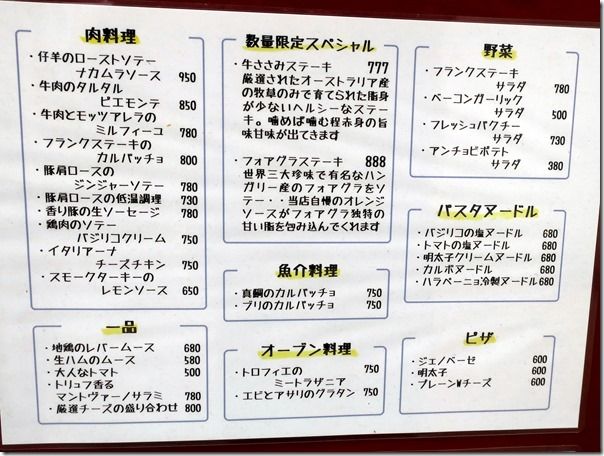 肉料理
・仔羊のローストソテー
ナカムラソース 950
・牛肉のタルタル
ピエモンテ 850
・牛肉とモッツアレラの
ミルフィーユ 780
・フランクステーキの
カルパッチョ 800
・豚肩ロースの
ジンジャーソテー 780
・豚肩ロースの低温調理 730
・香り豚の生ソーセージ 780
・鶏肉のソテー
バジリコクリーム 750
・イタリアーナ
チーズチキン 750
・スモークターキーの
レモンソース 650
一品
・地鶏のレバームース 680
・生ハムのムース 580
・大人なトマト 500
・トリュフ香る
マントヴァーノサラミ 780
・厳選チーズの盛り合わせ 800
数量限定スペシャル
・牛ささみステーキ 777
厳選されたオーストラリア産
の牧草のみで育てられた脂身
が少ないヘルシーなステー
キ。噛めば噛む程赤身の旨
味甘味が出てきます
・フォアグラステーキ 888
世界三大珍味で有名なハン
ガリー産のフォアグラをソ
テー・・当店自慢のオレンジ
ソースがフォアグラ独特の
甘い脂を包み込んでくれます
魚介料理
・真鯛のカルパッチョ 750
・ブリのカルパッチョ 750
オーブン料理
・トロフィエの
ミートラザニア 750
・エビとアサリのグラタン 750
野菜
・フランクステーキ
サラダ 780
・ベーコンガーリック
サラダ 500
・フレッシュパクチー
サラダ 730
・アンチョビポテト
サラダ 380
パスタヌードル
・バジリコの塩ヌードル 680
・トマトの塩ヌードル 680
・明太子クリームヌードル 680
・カルボヌードル 680
・ハラペーニョ冷製ヌードル 680
ピザ
・ジェノベーゼ 600
・明太子 600
・プレーンWチーズ 600